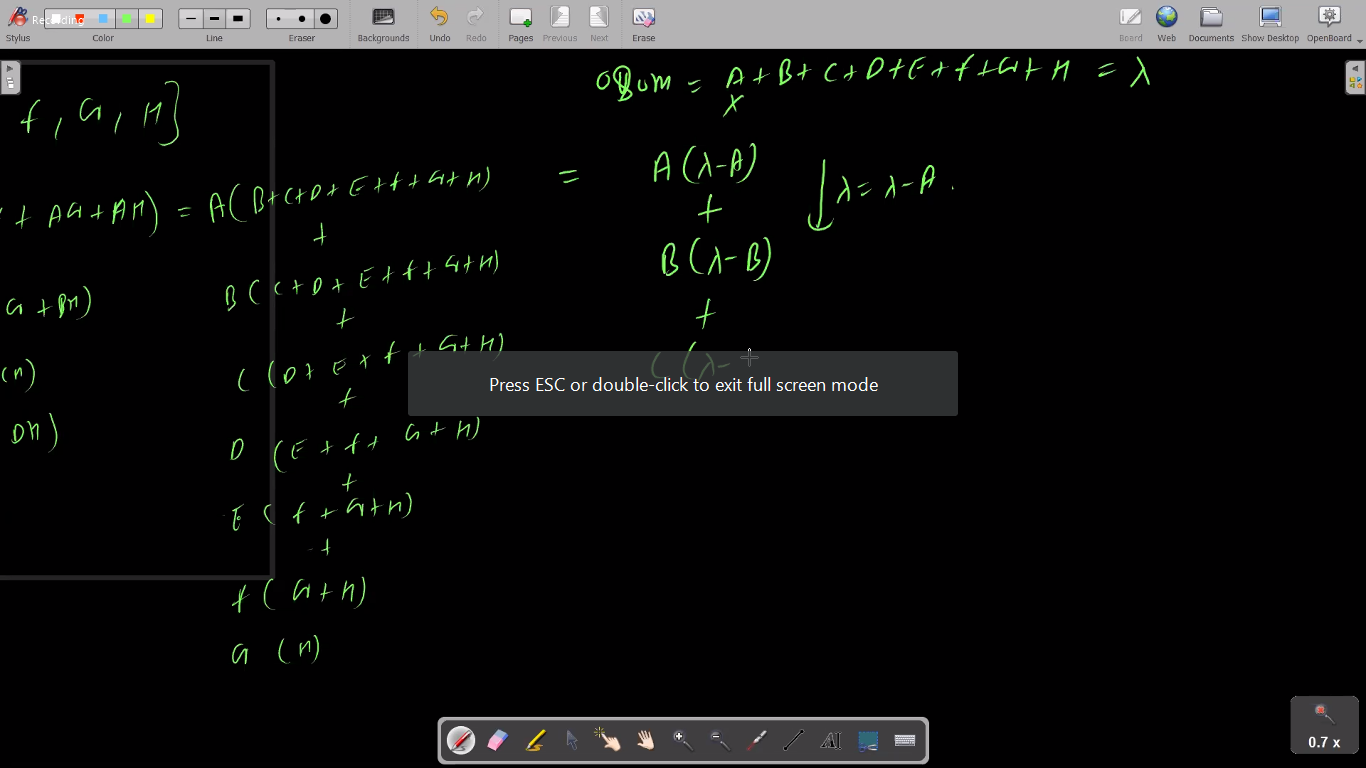 Recording
Stylus Color Line Eraser Backgrounds Undo Redo Pages Previous Next Erase Board Web Documents Show Desktop OpenBoard
f, G, H]
+ AG + AH) = A(B+C+D+E+f+G+H)
+
G + BH)
B(C+D+E+f+G+H)
+
(H)
C(D+E+f+G+H)
+
DH)
D(E+f+G+H)
+
E(f+G+H)
+
f(G+H)
G(H)
= A+B+C+D+E+f+G+H = λ
x
= A(λ-A)
+
B(λ-B)
+
C(λ-
λ = λ-A.
Press ESC or double-click to exit full screen mode
AI
0.7 x